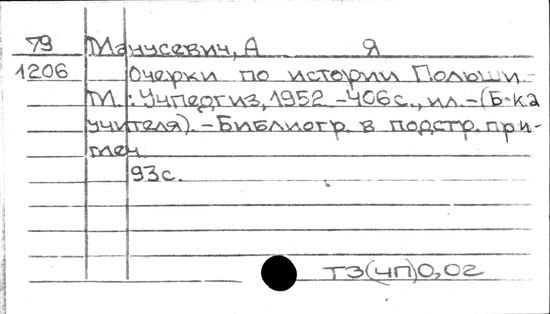 79 Манусевич, А Я
1206 Очерки по истории Польши.-
М.: Учпедгиз, 1952 -406 с., ил.-(Б-ка
учителя).-Библиогр. в подстр. при-
меч.
93с.
ТЗ(4П)0,02